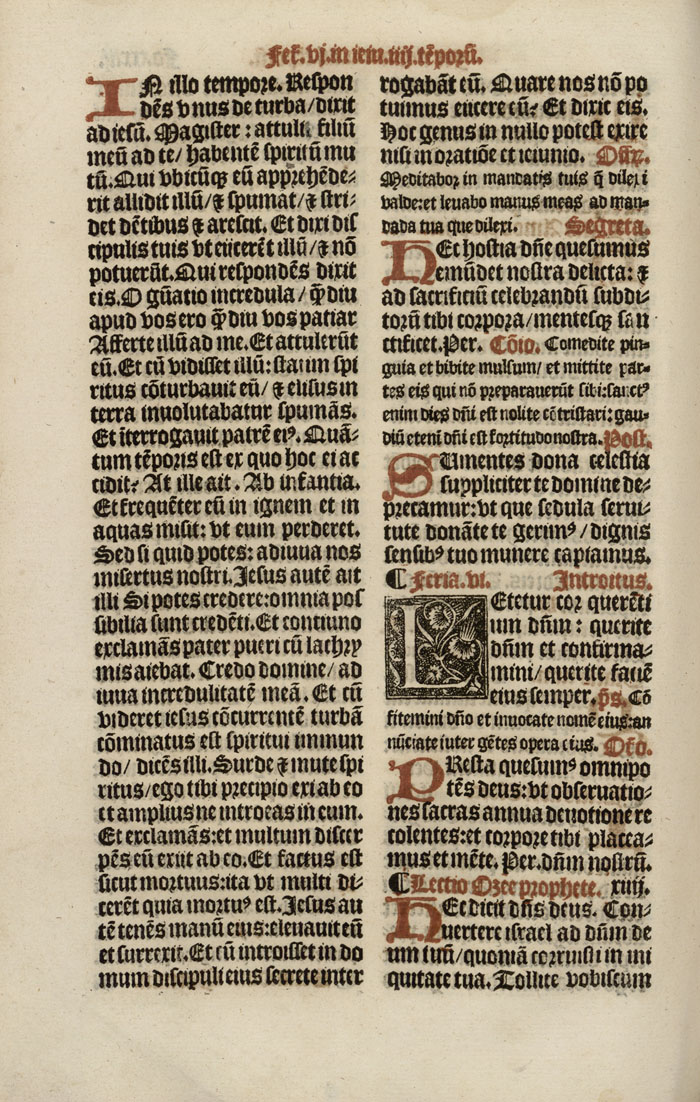 Feẜ.vj.in ieiu.iiij.tẽporũ.
IN illo tempore. Respon
dẽs vnus de turba/dixit
ad iesũ. Magister: attuli filiũ
meũ ad te/ habentẽ spiritũ mu
tũ. Qui vbicũqꝫ eũ apprehẽde⸗
rit allidit illũ/⁊ spumat/⁊ stri⸗
det dẽtibus ⁊ arescit. Et dixi dis
cipulis tuis vt eiicerẽt illũ/⁊ nõ
potuerũt. Qui respondẽs dixit
eis. O gñatio incredula/ q̃̃diu
apud vos ero q̃̃diu vos patiar
Afferte illũ ad me. Et attulerũt
eũ. Et cũ vidisset illũ: statim spi
ritus cõturbauit eũ/ ⁊ elisus in
terra inuolutabatur spumãs.
Et ĩterrogauit patrẽ eiꝰ. Quã⸗
tum tẽporis est ex quo hoc ei ac
cidit? At ille ait. Ab infantia.
Et frequẽter eũ in ignem et in
aquas misit: vt eum perderet.
Sed si quid potes: adiuua nos
misertus nostri. Jesus autẽ ait
illi Si potes credere: omnia pos
sibilia sunt credẽti. Et continuo
exclamãs pater pueri cũ lachry
mis aiebat. Credo domine/ ad
iuua incredulitatẽ meã. Et cũ
videret iesus cõcurrentẽ turbã
cõminatus est spiritui immun
do/ dicẽs illi. Surde ⁊ mute spi
ritus/ego tibi precipio exi ab eo
et amplius ne introeas in eum.
Et exclamãs: et multum discer
pẽs eũ exiit ab eo. Et factus est
sicut mortuus: ita vt multi di⸗
cerẽt quia mortuꝰ est. Jesus au
tẽ tenẽs manũ eius: eleuauit eũ
et surrexit. Et cũ introisset in do
mum discipuli eius secrete inter
rogabãt eũ. Quare nos nõ po
tuimus eiicere eũ? Et dixit eis.
Hoc genus in nullo potest exire
nisi in oratiõe et ieiunio. Offẜ.
Meditabor in mandatis tuis q̃ dilexi
valde: et leuabo manus meas ad man⸗
dada tua que dilexi. Segreta.
HEc hostia dñe quesumus
emũdet nostra delicta: ⁊
ad sacrificiũ celebrandũ subdi⸗
torũ tibi corpora/ mentesqꝫ san
ctificet. Per. Cõio. Comedite pin⸗
guia et bibite mulsum/ et mittite par⸗
tes eis qui nõ preparauerũt sibi: sanctꝰ
enim dies dñi est nolite cõtristari: gau⸗
diũ etenĩ dñi est fortitudo nostra. Post.
SUmentes dona celestia
suppliciter te domine de⸗
precamur: vt que sedula serui⸗
tute donãte te gerimꝰ/ dignis
sensibꝰ tuo munere capiamus.
¶ Feria.vi. Introitus.
LEtetur cor querẽti
um dñm: querite
dñm et confirma⸗
mini/ querite faciẽ
eius semper. p̃s. Cõ
fitemini dño et inuocate nomẽ eius: an
nũciate inter gẽtes opera eius. Oŕo.
PResta quesumꝰ omnipo
tẽs deus: vt obseruatio⸗
nes sacras annua deuotione re
colentes: et corpore tibi placea⸗
mus et mẽte. Per. dñm nostrũ.
¶ Lectio Ozee prophete. xiiij.
HEc dicit dñs deus. Con⸗
uertere israel ad dñm de
um tuũ/ quoniã corruisti in ini
quitate tua. Tollite vobiscum